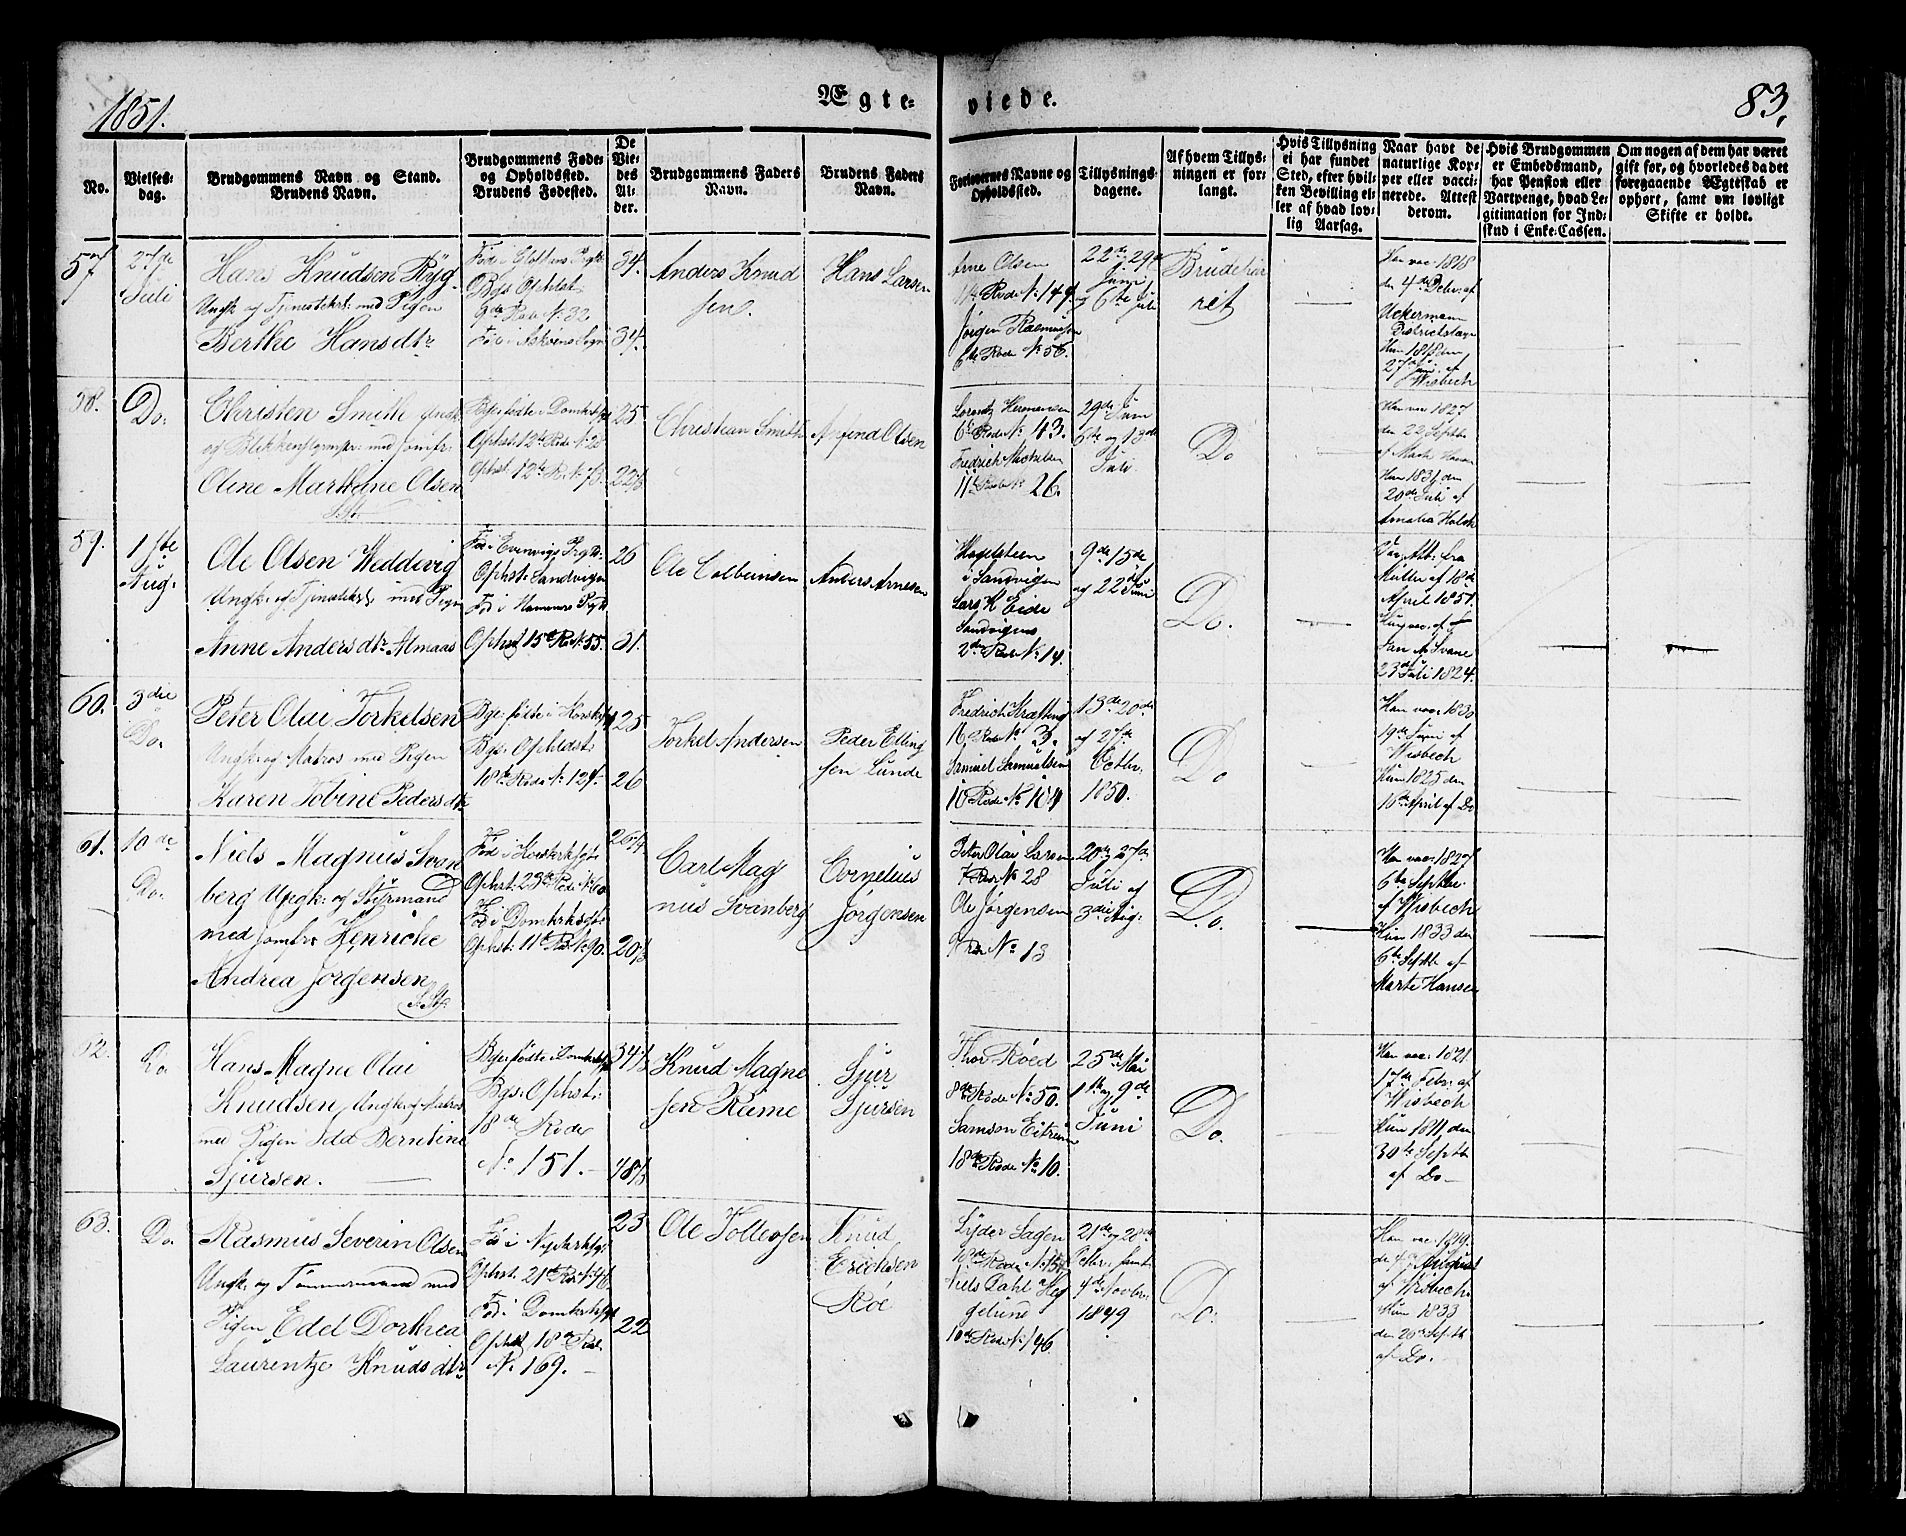 1851.
Ægte-
viede.
83.
No.
Vielses-
dag.
Brudgommens Navn og Stand.
Brudens Navn.
Brudgommens Føde-
og Opholdssted.
Brudens Fødested.
De
Vie-
des
Al-
der.
Brudgommens Faders
Navn.
Brudens Faders
Navn.
Forlovernes Navne og
Opholdssted.
Tillysnings-
dagene.
Af hvem Tillys-
ningen er for-
langt.
Hvis Tillysning
ei har fundet
Sted, efter hvil-
ken Bevilling el-
ler af hvad lov-
lig Aarsag.
Naar havt de
naturlige Kop-
per eller vacci-
nerede. Attest
derom.
Hvis Brudgommen
er Embedsmand,
har Pension eller
Vartpenge, hvad Le-
gitimation for Ind-
skud i Enke-Cassen.
Om nogen af dem har været
gift før, og hvorledes da det
foregaaende Ægteskab er
ophørt, samt om lovligt
Skifte er holdt.
57
27de
Juli
Hans Knudsen Ryg
Ungk. og Tjenestekrl. med Pigen
Berthe Hansdtr
Bgs. Ophlst.
9de Rode No 32
Fød i Askvens Sogn
34.
34.
Anders Knud
sen.
Hans Larsen
Arne Olsen
14 Rode No 149.
Jørgen Rasmussen
6te Rode No 56.
22de 29de
Juni
og 6te Juli
Brudepar
ret
Han vac. 1818
den 4de Debr. af
Uckermann
Districtslæge
Hun 1818 den
27de Juni af
Wisbech
58.
Do.
Christen Smith Ungk.
og Blikkenslagersv. med Jomfr.
Oline Marthine Olsen
Bge. fødte i Domk.
Ophst. 12te Rode No 28
Ophst. 12te R. No 78.
25
22⅔
Christian Smith
Arfind Olsen
Lorentz Hermansen
6te Rode No 43.
Fredrich Michelsen
11te Rode No 26.
29de Juni
6te og 13de
Juli
Do
Han vac. 1827
den 22 Septbr
af Marte Hansen
Hun 1831 den
20de Juli af
Amalia Holck
59.
1ste
Aug.
Ole Olsen Weddevig
Ungk. og Tjenestekrl. med Pigen
Anne Andersdtr Almaas
Fød i Evenvigs Prgld.
Ophst. Sandvigen
Fød i Hammers Prgld.
Ophst 15de R. No 55.
26
31.
Ole Colbeinsen
Anders Arnesen
Hagelsteen
i Sandvigen
Lars K Eide
Sandvigens
2den Rode No 14.
9de 15de
og 22de Juni
Do.
Vac. Att. fra
Müller af 18de
April 1851.
Hun vac. af
Jan A Svane
23de Juli 1824.
60.
3die
Do.
Peter Olai Torkelsen
Ungk. og Matros med Pigen
Karen Tobine Pedersdtr
Bge. fødte i Korsk.
Bgs. Ophldst.
18de Rode No 124.
25
26
Torkel Andersen
Peder Elling
sen Lunde
Fredrich Kræfting
16 Rode No 3.
Samuel Samuelsen
10 Rode No 104
13de 20de
og 27de
Octbr.
1850.
Do
Han vac. 1830
19de Juni af
Wisbech
Hun 1825 den
16de April af Do
61.
10de
Do.
Niels Magnus Svan
berg Ungk. og Styrmand
med Jomfru Henriche
Andrea Jørgensen
Fød i Korskirksgt.
Ophst. 23de Rode No 60
Fød i Domkirksgt.
Ophst. 11te Rod. No 90.
26¾
20⅔
Carl Mag
nus Svanberg
Cornelius
Jørgensen
Peter Olai Larsen
7 Rode No 28
Ole Jørgensen
9 Rode No 13
20de 27de
Juli og
3die Aug:
Do.
Han vac. 1827
6te Septbr.
af Wisbech
Hun 1833 den
6te Septbr. af
Marte Hansen
62.
Do.
Hans Magne Olai
Knudsen, Ungk. og Matros
med Pigen Idet Berntine
Sjursen.
Bge. fødte i Domk.
Bgs. Ophst.
18de Rode
No 151.
34⅓
18⅓
Knud Magne
sen Reime
Sjur
Sjursen
Thor Røed
8de Rode No 50.
Samson Eitrem
18de Rode No 10.
25de Mai
1ste og 9de
Juni
Do.
Han vac. 1821
17de Febr. af
Wisbech
Hun 1841 den
30te Septb.
af Do
63.
Do.
Rasmus Severin Olsen
Ungk. og Tømmermand med
Pigen Edel Dorthea
Laurentze Knudsdtr
Fød i Nykirksgt.
Ophst. 21de Rode No 46.
Fød i Domkirksgt.
Ophst 18de Rode
No 169.
23
22
Ole Tollevsen
Knud
Erichsen
Roe
Lyder Sagen
18de Rode No 154
Niels Dahl Heg
gelund
10de Rode No 146
21de og 28de
Octbr. samt
4de Novbr.
1849
Do.
Han vac. 1829.
de 4de August
af Wisbech.
Hun 1833
den 20de Septb.
af Do.